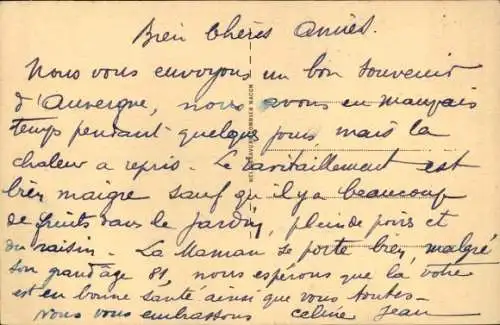 Bien Chères Amies.
Nous vous envoyons un bon souvenir
d'Auvergne, nous avons eu mauvais
temps pendant quelque jours, mais la
chaleur a repris. Le ravitaillement est
bien maigre sauf qu'il y a beaucoup
de fruits dans le jardin, plein de poires et
du raisin. La Maman se porte bien, malgré
son grand âge 81, nous espérons que la votre
est en bonne santé ainsi que vous toutes.
Nous vous embrassons Celine Jean